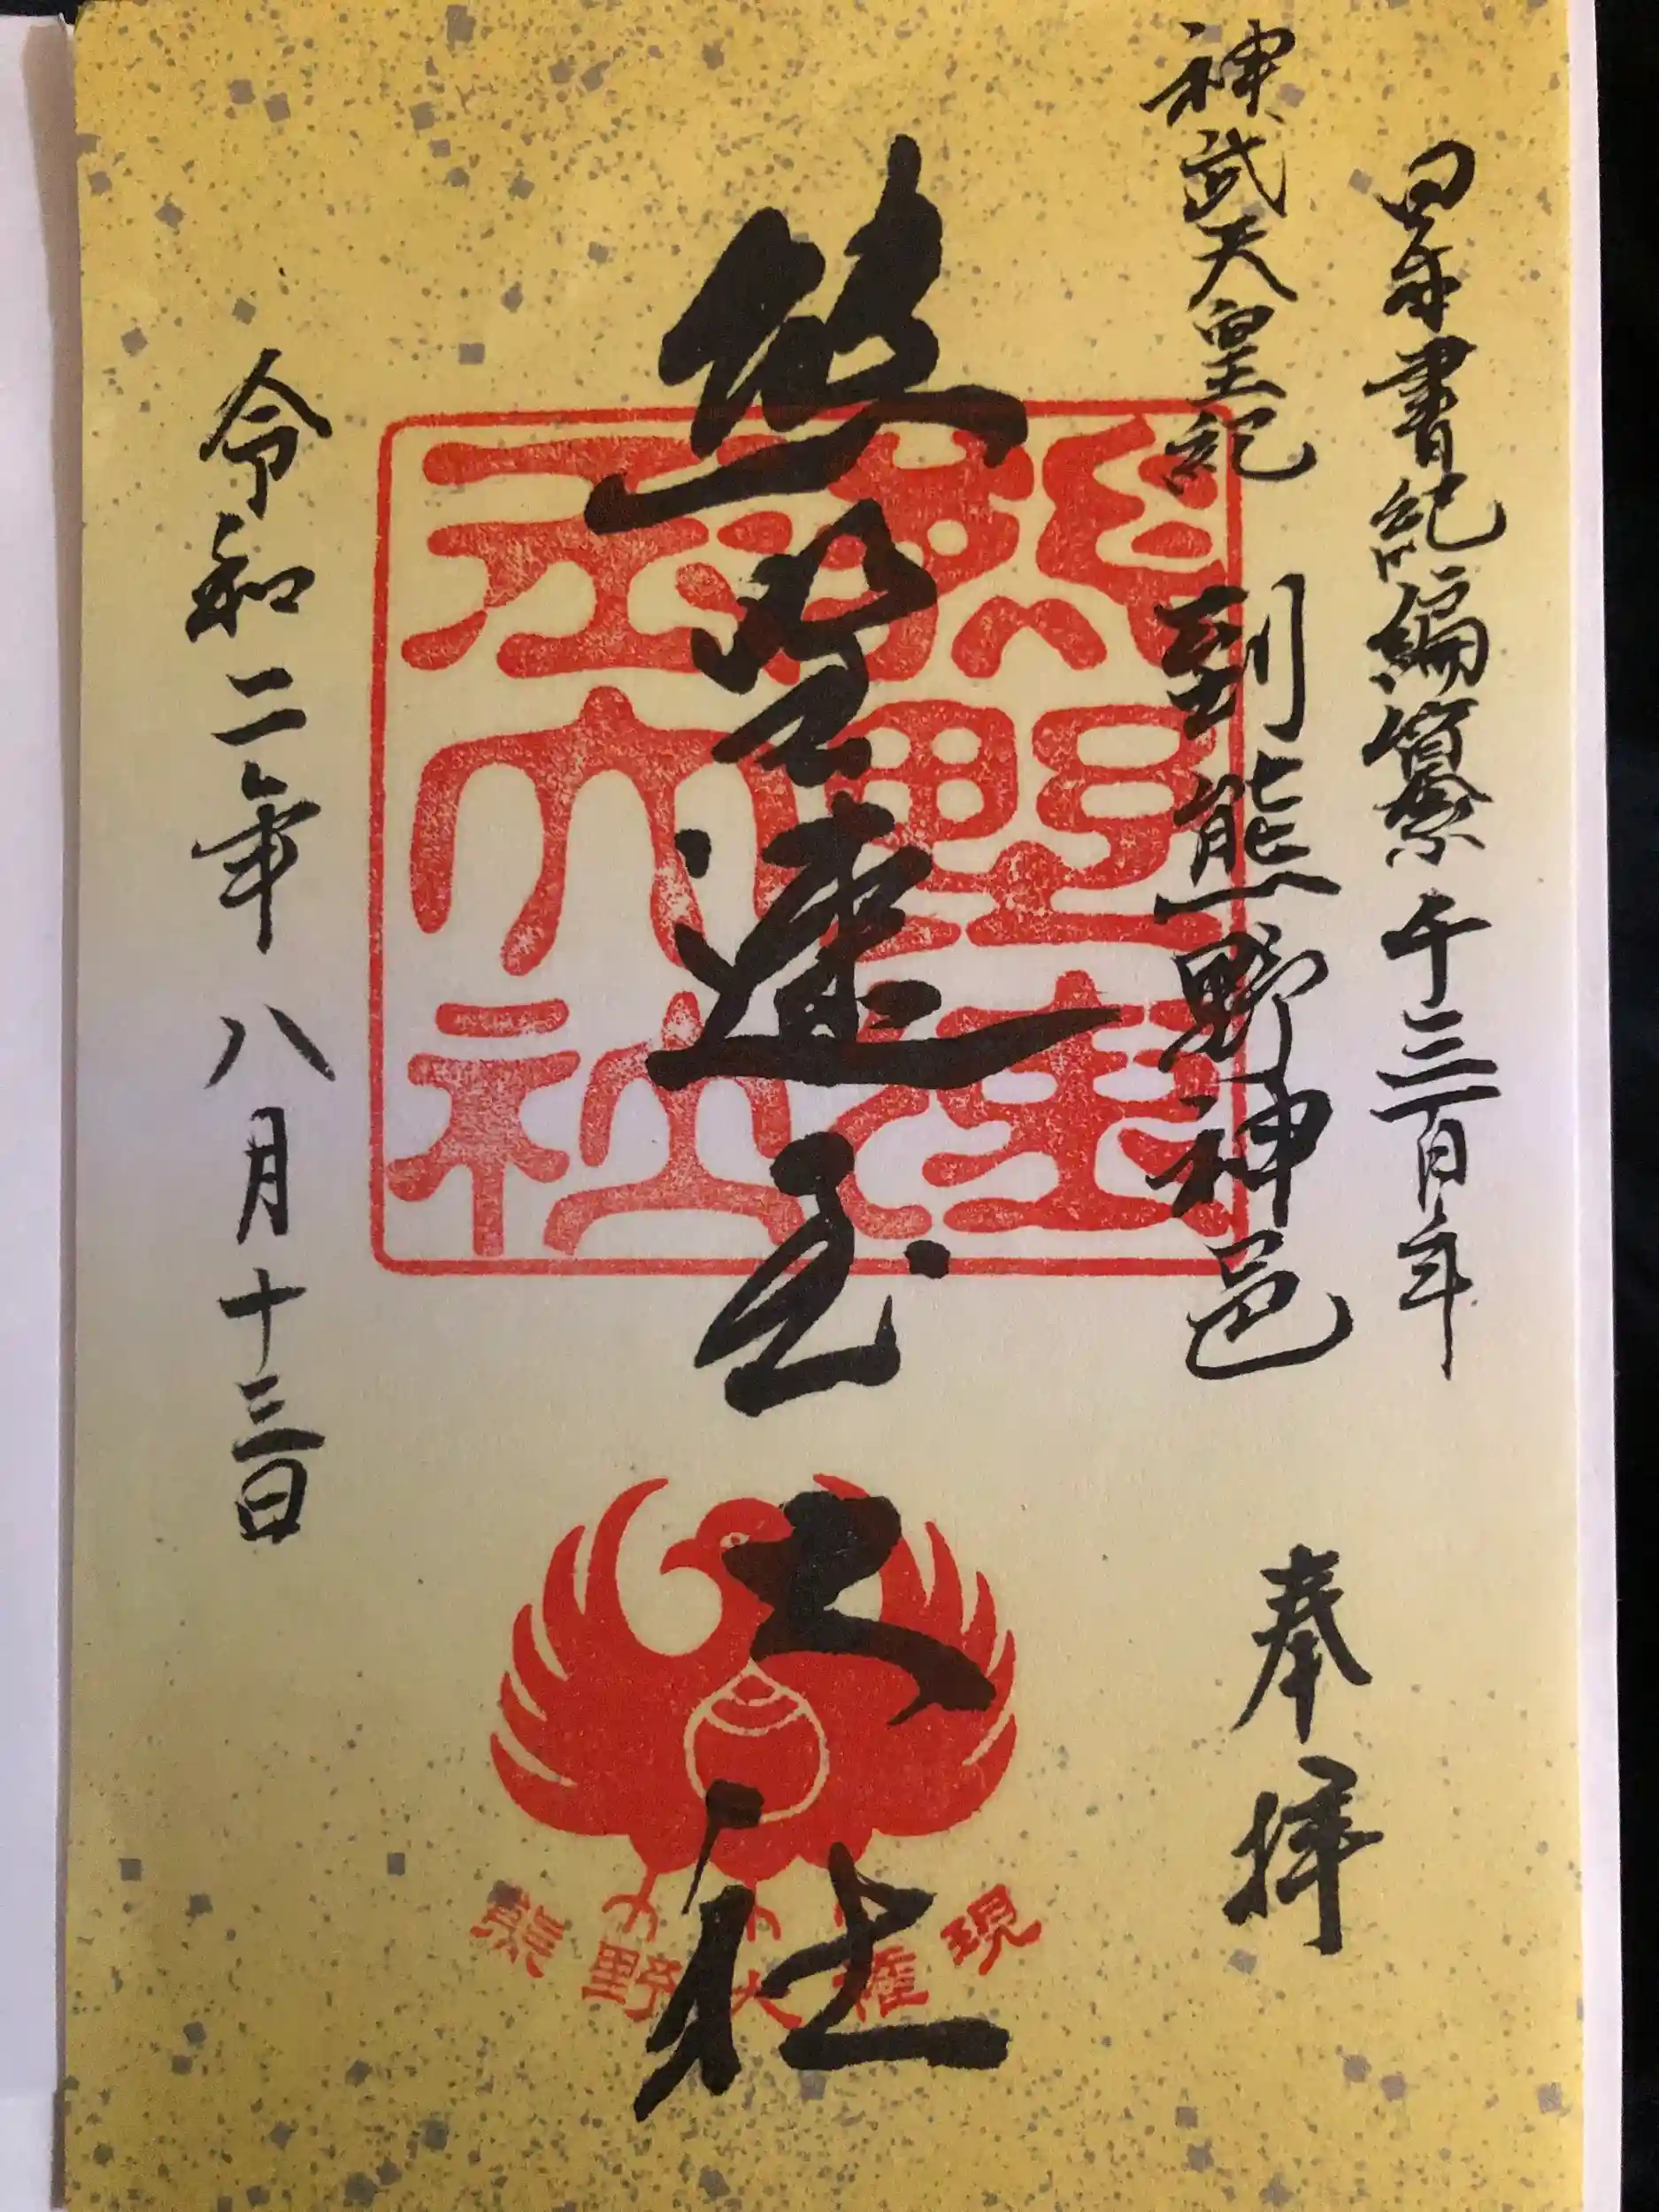 日本書紀編纂千三百年
神武天皇記 到熊野神邑
奉拝
熊野速玉大社
熊野速玉大社
令和二年八月十三日
熊野大権現